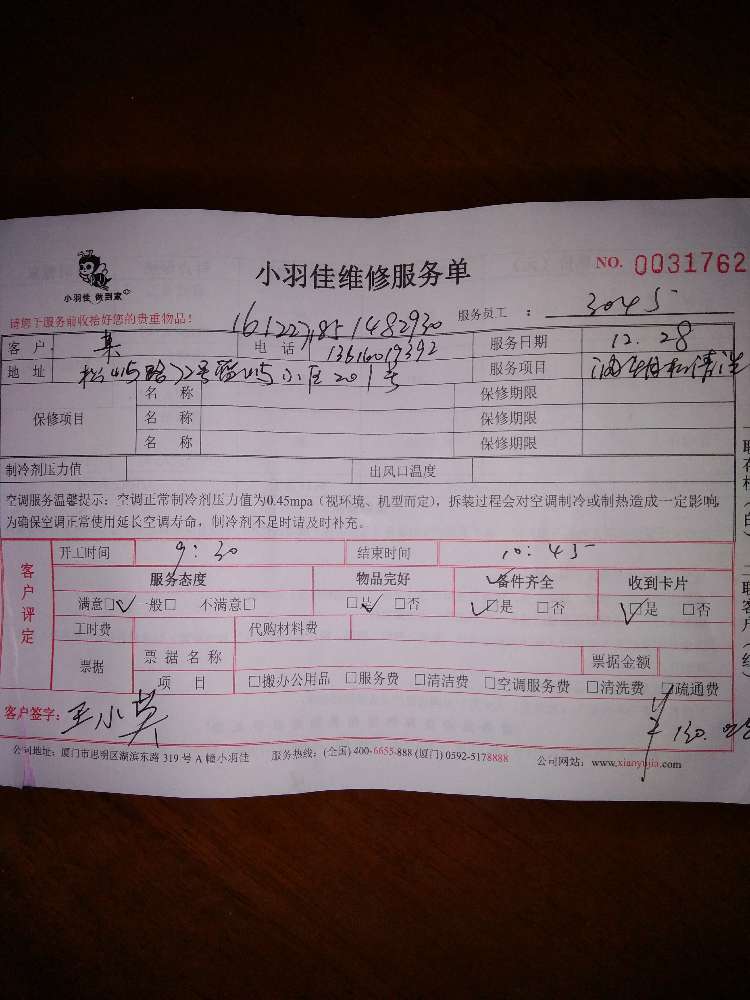 小羽佳 做到家
小羽佳维修服务单
NO. 0031762
请您于服务前收拾好您的贵重物品！
服务员工： 3045
客户 电话 13616019392 服务日期 12.28
地址 服务项目
保修项目 名称 保修期限
名称 保修期限
名称 保修期限
制冷剂压力值 出风口温度
空调服务温馨提示：空调正常制冷剂压力值为0.45mpa（视环境、机型而定），拆装过程会对空调制冷或制热造成一定影响，
为确保空调正常使用延长空调寿命，制冷剂不足时请及时补充。
开工时间 9:30 结束时间 10:45
客户评定
服务态度 物品完好 备件齐全 收到卡片
满意□✓ 一般□ 不满意□ □是✓ □否 ✓□是 □否 ✓□是 □否
工时费 代购材料费
票据 票据名称 票据金额
项目 □搬办公用品 □服务费 □清洁费 □空调服务费 □清洗费 □疏通费
客户签字： 王小英
公司地址：厦门市思明区湖滨东路 319 号 A 幢小羽佳 服务热线：(全国) 400-6655-888 (厦门) 0592-5178888 公司网站：www.xianyujia.com